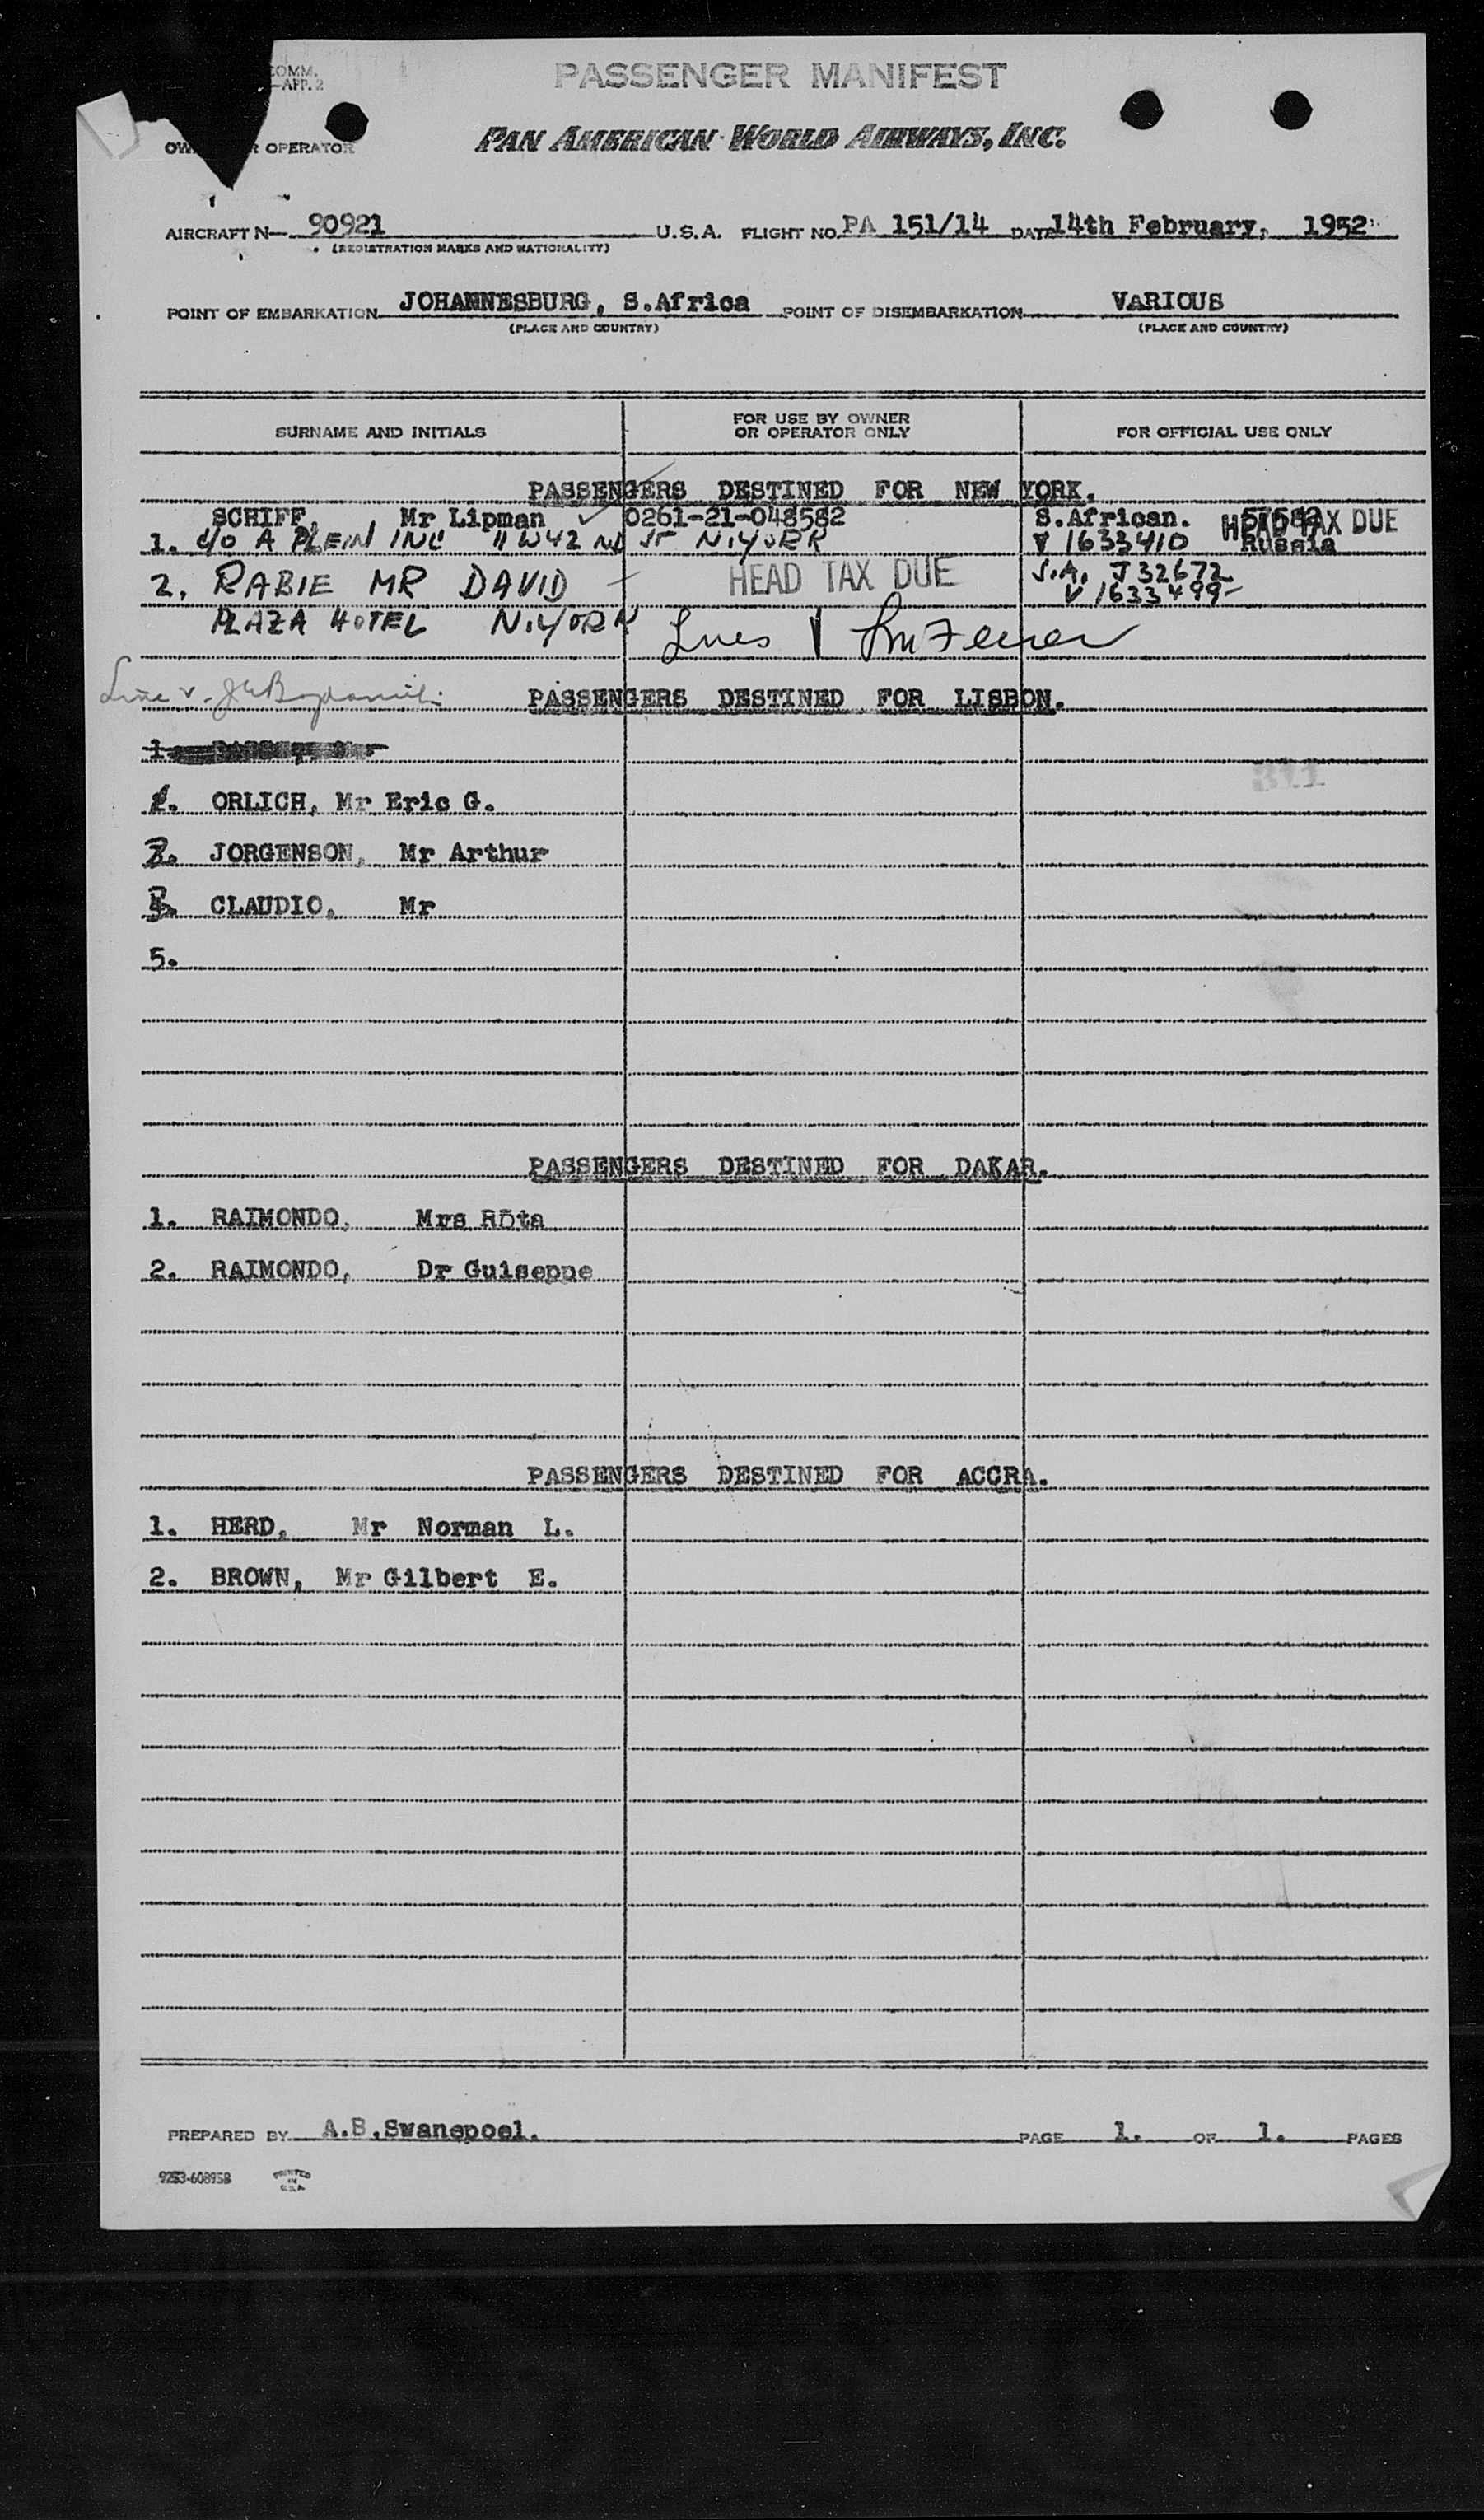 COMM.
—APP. 2
PASSENGER MANIFEST
OPERATOR
PAN AMERICAN WORLD AIRWAYS, INC.
AIRCRAFT N— 90921 U.S.A. FLIGHT NO. PA 151/14 DATE 14th February, 1952
(REGISTRATION MARKS AND NATIONALITY)
POINT OF EMBARKATION JOHANNESBURG, S.Africa POINT OF DISEMBARKATION VARIOUS
(PLACE AND COUNTRY) (PLACE AND COUNTRY)
SURNAME AND INITIALS FOR USE BY OWNER OR OPERATOR ONLY FOR OFFICIAL USE ONLY
PASSENGERS DESTINED FOR NEW YORK.
SCHIFF, Mr Lipman 0261-21-048582 S.African. HEAD TAX DUE
1. c/o A PLEIN INC 11 W 42 ND ST N.YORK V 1633410 Russia
2. RABIE MR DAVID — HEAD TAX DUE S.A. J 32672
V 1633499
PLAZA HOTEL N.YORK
Lines
Line
PASSENGERS DESTINED FOR LISBON.
1.
311
ORLICH, Mr Eric G.
JORGENSON, Mr Arthur
CLAUDIO, Mr
5.
PASSENGERS DESTINED FOR DAKAR.
1. RAIMONDO, Mrs
2. RAIMONDO, Dr Guiseppe
PASSENGERS DESTINED FOR ACCRA.
1. HERD, Mr Norman L.
2. BROWN, Mr Gilbert E.
PREPARED BY A.B.Swanepoel. PAGE 1. OF 1. PAGES
PRINTED
IN
U.S.A.